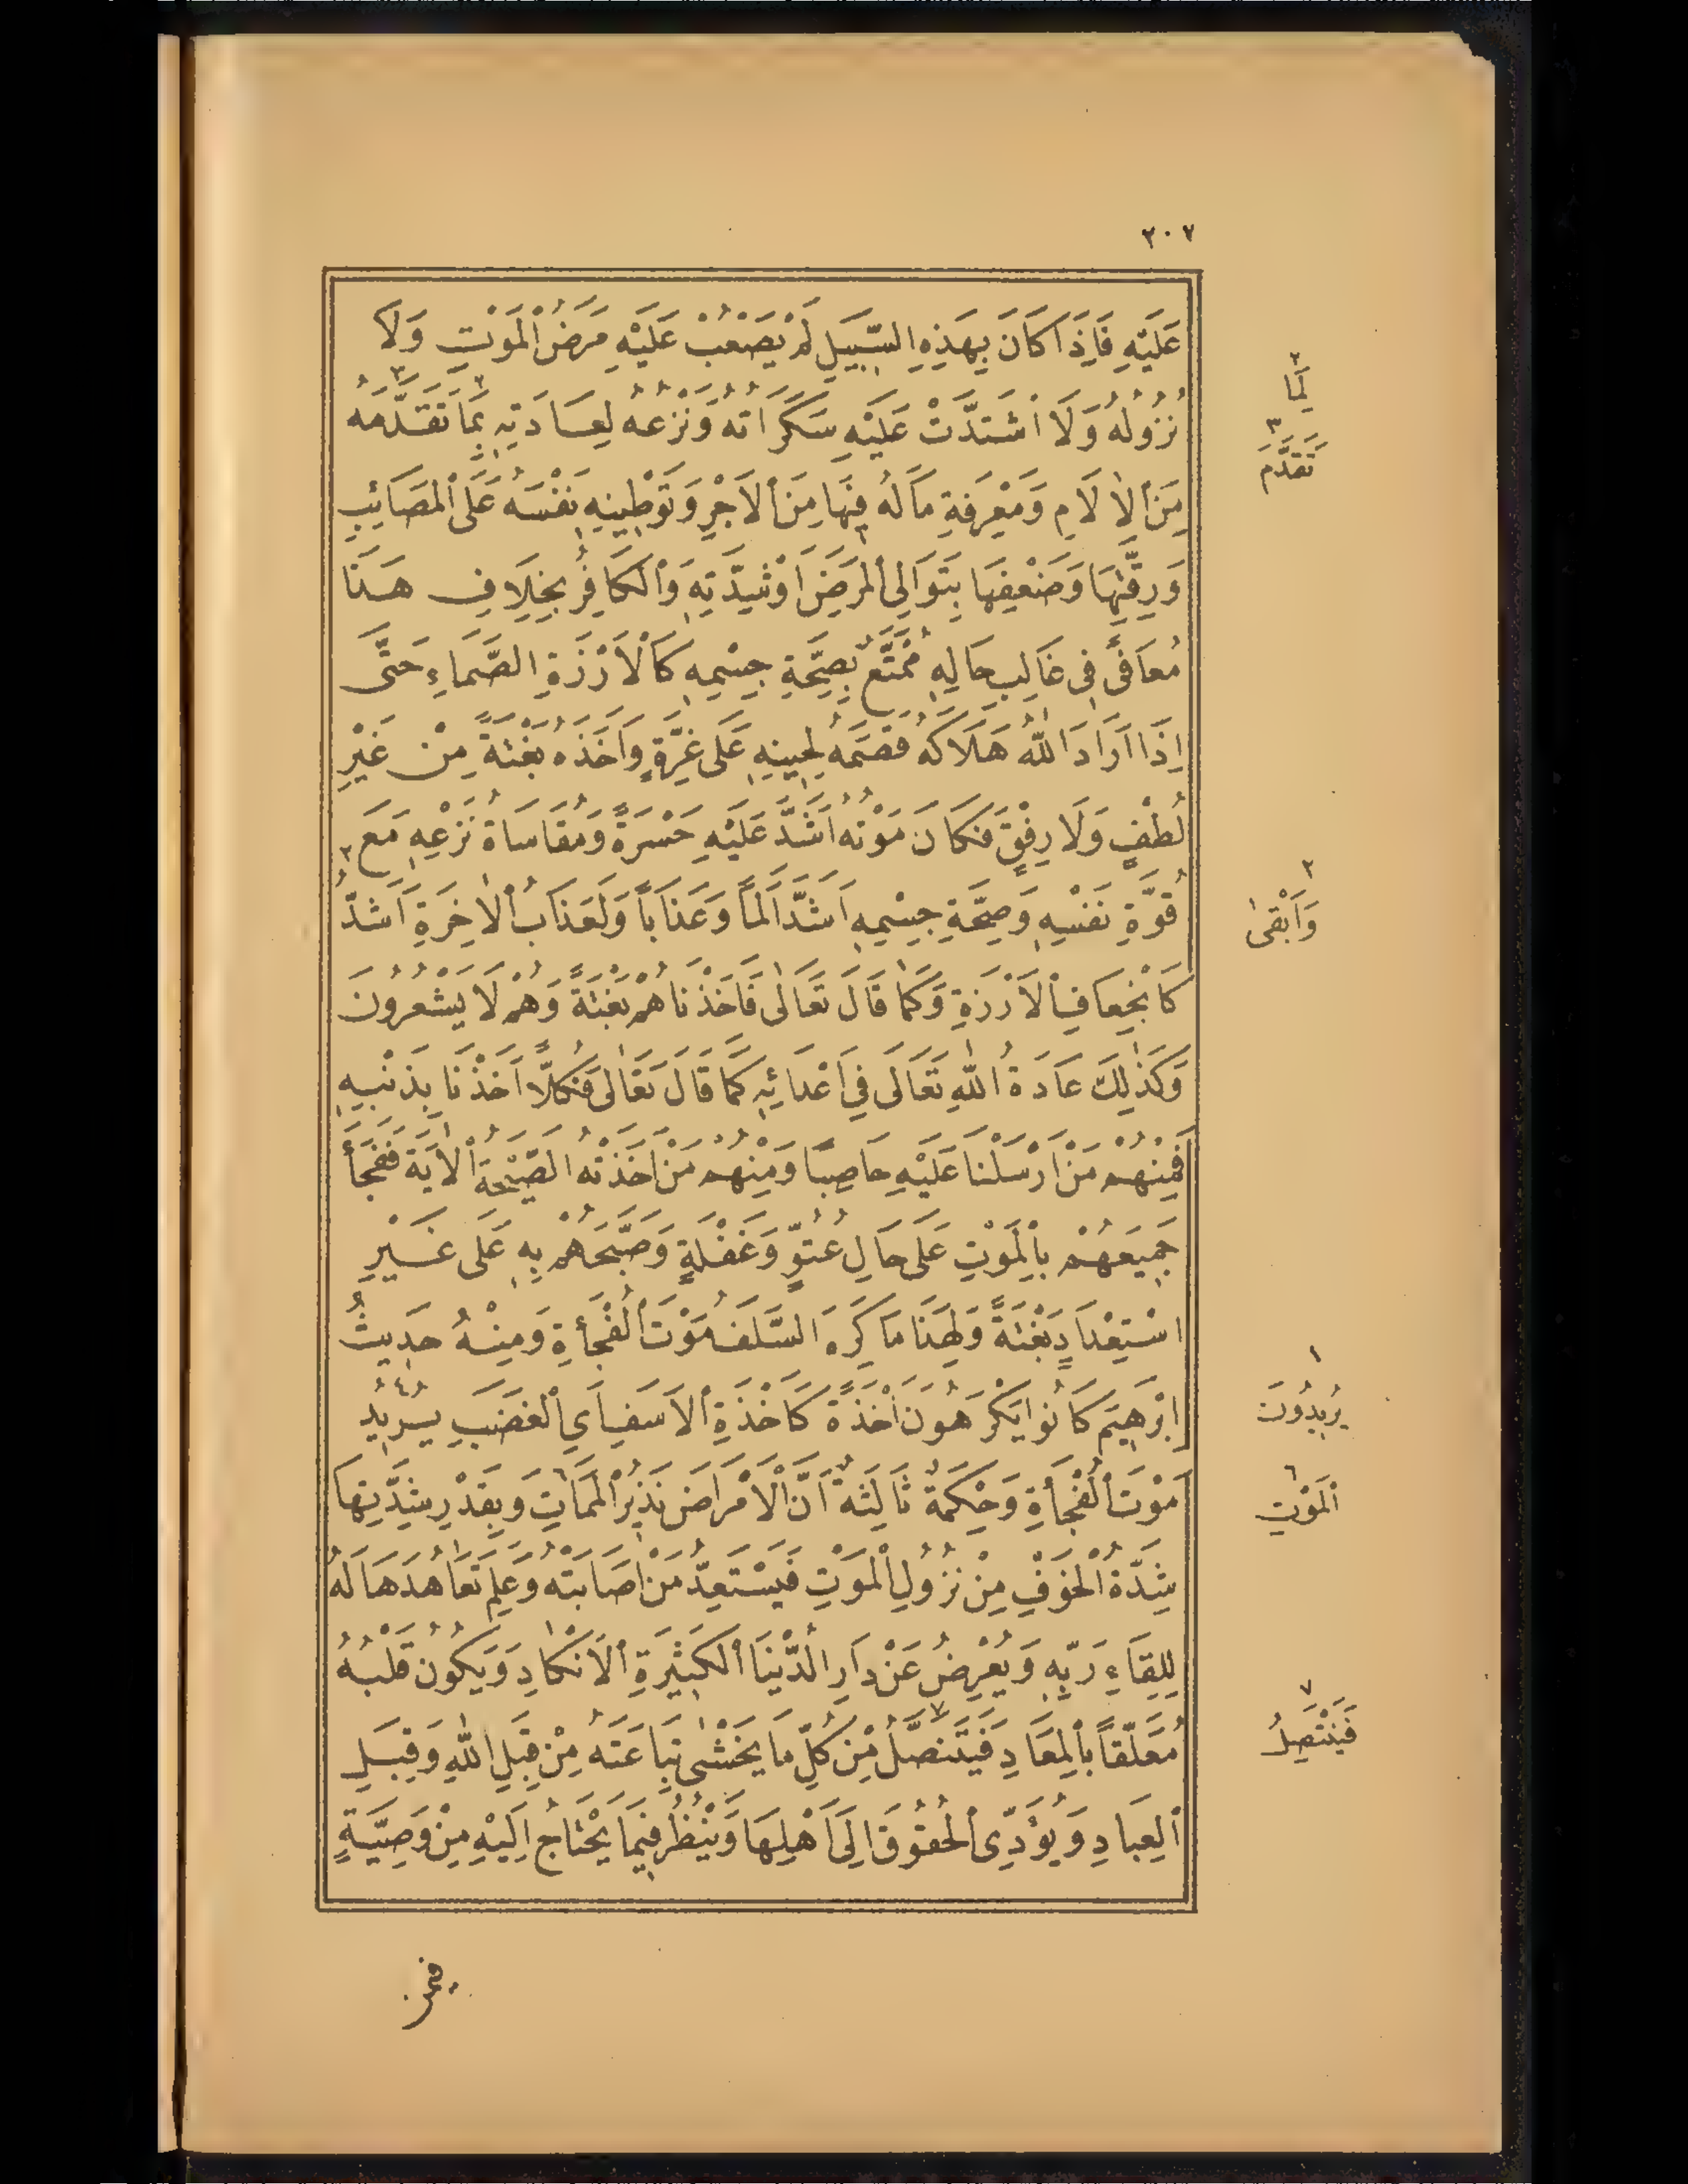 ٢٠٧
عَلَيْهِ فَاِذَا كَانَ بِهَذِهِ السَّبِيلِ لَمْ يَصْعُبْ عَلَيْهِ مَرَضُ الْمَوْتِ وَلَا
نُزُولُهُ وَلَا اشْتَدَّتْ عَلَيْهِ سَكَرَاتُهُ وَنَزْعُهُ لِعَادَتِهِ بِمَا تَقَدَّمَهُ
مِنَ الْاٰلَامِ وَمَعْرِفَةِ مَا لَهُ فِيهَا مِنَ الْاَجْرِ وَتَوْطِينِهِ نَفْسَهُ عَلَى الْمَصَائِبِ
وَرِقَّتِهَا وَضَعْفِهَا بِتَوَالِى الْمَرَضِ اَوْ شِدَّتِهِ وَالْكَافِرُ بِخِلَافِ هَذَا
مُعَافًى فِى غَالِبِ حَالِهِ مُمَتَّعٌ بِصِحَّةِ جِسْمِهِ كَالْاَرْزَةِ الصَّمَاءِ حَتَّى
اِذَا اَرَادَ اللّٰهُ هَلَاكَهُ قَصَمَهُ لِحِينِهِ عَلَى غِرَّةٍ وَاَخَذَهُ بَغْتَةً مِنْ غَيْرِ
لُطْفٍ وَلَا رِفْقٍ فَكَانَ مَوْتُهُ اَشَدَّ عَلَيْهِ حَسْرَةً وَمُقَاسَاةُ نَزْعِهِ مَعَ
قُوَّةِ نَفْسِهِ وَصِحَّةِ جِسْمِهِ اَشَدَّ اَلَمًا وَعَذَابًا وَلَعَذَابُ الْاٰخِرَةِ اَشَدُّ ٢
كَانْجِعَافِ الْاَرْزَةِ وَكَمَا قَالَ تَعَالٰى فَاَخَذْنَاهُمْ بَغْتَةً وَهُمْ لَا يَشْعُرُونَ
وَكَذٰلِكَ عَادَةُ اللّٰهِ تَعَالٰى فِي اَعْدَائِهِ كَمَا قَالَ تَعَالٰى فَكُلًّا اَخَذْنَا بِذَنْبِهِ
فَمِنْهُمْ مَنْ اَرْسَلْنَا عَلَيْهِ حَاصِبًا وَمِنْهُمْ مَنْ اَخَذَتْهُ الصَّيْحَةُ الْاٰيَةَ فَفَجَأَ
جَمِيعَهُمْ بِالْمَوْتِ عَلَى حَالِ عُتُوٍّ وَغَفْلَةٍ وَصَبَّحَهُمْ بِهِ عَلَى غَيْرِ
اسْتِعْدَادٍ بَغْتَةً وَلِهَذَا مَا كَرِهَ السَّلَفُ مَوْتَ الْفُجْأَةِ وَمِنْهُ حَدِيثُ
اِبْرٰهِيمَ كَانُوا يَكْرَهُونَ اَخْذَةً كَاَخْذَةِ الْاَسَفِ اَيِ الْغَضَبِ يُرِيدُ
مَوْتَ الْفُجْأَةِ وَحِكْمَةٌ ثَالِثَةٌ اَنَّ الْاَمْرَاضَ نَذِيرُ الْمَمَاتِ وَبِقَدْرِ شِدَّتِهَا
شِدَّةُ الْخَوْفِ مِنْ نُزُولِ الْمَوْتِ فَيَسْتَعِدُّ مَنْ اَصَابَتْهُ وَعَلِمَ تَعَاهُدَهَا لَهُ
لِلِقَاءِ رَبِّهِ وَيُعْرِضُ عَنْ دَارِ الدُّنْيَا الْكَثِيرَةِ الْاَنْكَادِ وَيَكُونُ قَلْبُهُ
مُعَلَّقًا بِالْمَعَادِ فَيَتَنَصَّلُ مِنْ كُلِّ مَا يَخْشٰى تِبَاعَتَهُ مِنْ قِبَلِ اللّٰهِ وَقِبَلِ
الْعِبَادِ وَيُؤَدِّى الْحُقُوقَ اِلَى اَهْلِهَا وَيَنْظُرُ فِيمَا يَحْتَاجُ اِلَيْهِ مِنْ وَصِيَّةٍ
٢
لِمَا
٣
تَقَدَّمَ
٢
وَاَبْقٰى
١
يُرِيدُونَ
٦
اَلْمَوْتِ
٧
فَيَنْتَصِلُ